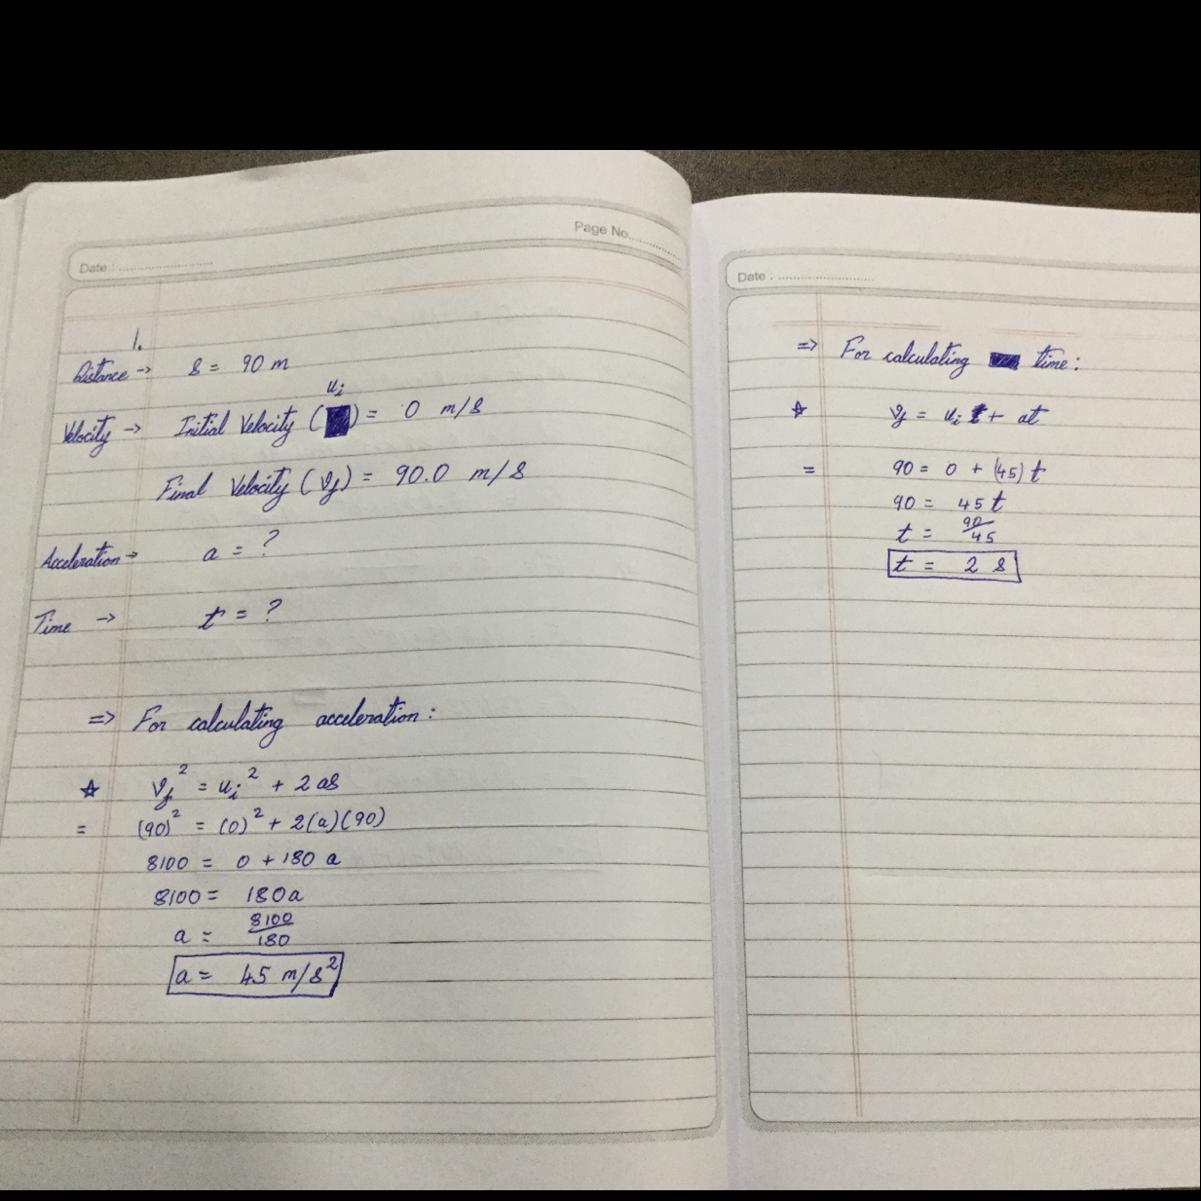 Page No..............
Date : ............................
1.
Distance -> s = 90 m
ui
Velocity -> Initial Velocity ( ) = 0 m/s
Final Velocity (vf) = 90.0 m/s
Acceleration -> a = ?
Time -> t = ?
=> For calculating acceleration :
☆ vf² = ui² + 2as
= (90)² = (0)² + 2(a)(90)
8100 = 0 + 180 a
8100 = 180a
a = 8100/180
a = 45 m/s²
Date : ............................
=> For calculating time :
☆ vf = ui + at
= 90 = 0 + (45) t
90 = 45 t
t = 90/45
t = 2 s